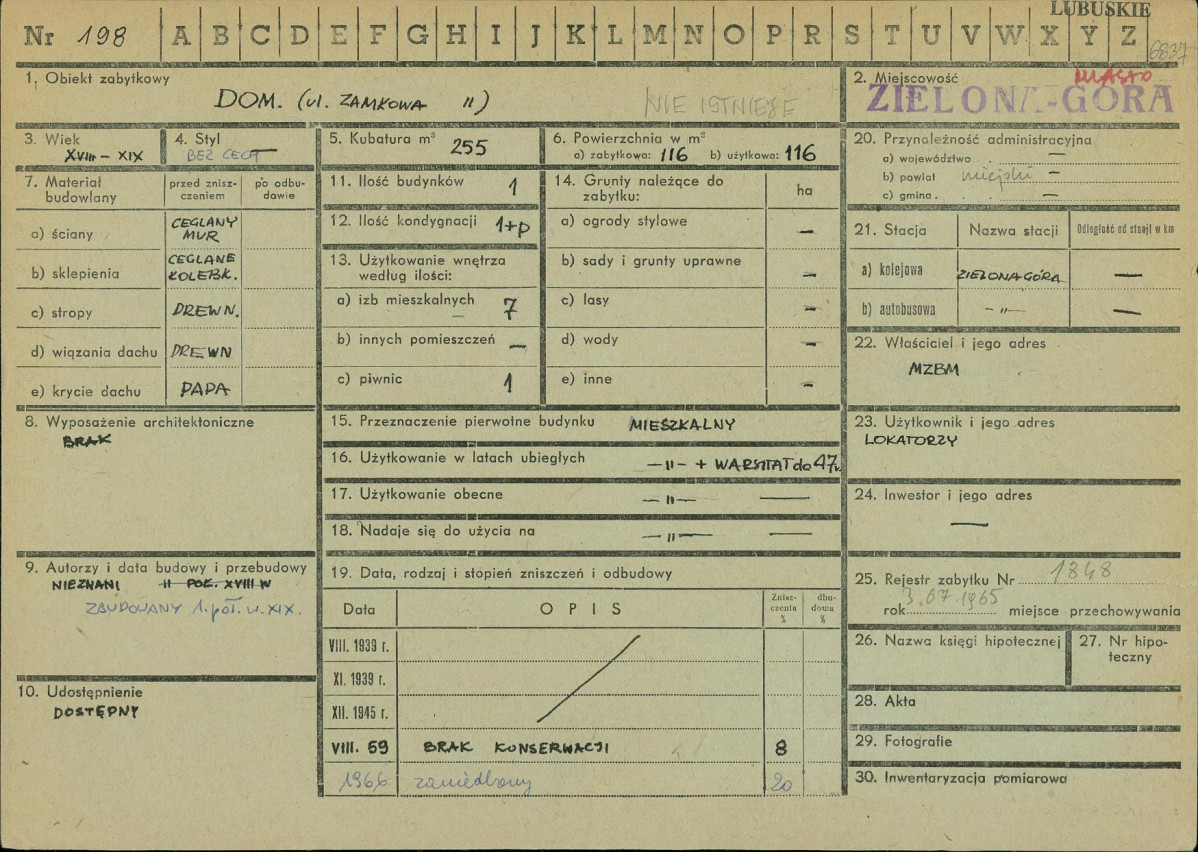 LUBUSKIE
Nr 198 A B C D E F G H I J K L M N O P R S T U V W X Y Z
6837
1. Obiekt zabytkowy
DOM. (ul. ZAMKOWA 11)
NIE ISTNIEJE
2. Miejscowość MIASTO
ZIELONA-GÓRA
3. Wiek
XVIII – XIX
4. Styl
BEZ CECH
5. Kubatura m³ 255
6. Powierzchnia w m²
a) zabytkowa: 116 b) użytkowa: 116
7. Materiał budowlany
przed zniszczeniem
po odbudowie
a) ściany CEGLANY MUR
b) sklepienia CEGLANE KOLEBK.
c) stropy DREWN.
d) wiązania dachu DREWN
e) krycie dachu PAPA
8. Wyposażenie architektoniczne
BRAK
9. Autorzy i data budowy i przebudowy
NIEZNANI II POŁ. XVIII W
ZBUDOWANY 1. poł. w. XIX.
10. Udostępnienie
DOSTĘPNY
11. Ilość budynków 1
12. Ilość kondygnacji 1+p
13. Użytkowanie wnętrza
według ilości:
a) izb mieszkalnych 7
b) innych pomieszczeń —
c) piwnic 1
14. Grunty należące do
zabytku:
ha
a) ogrody stylowe —
b) sady i grunty uprawne —
c) lasy —
d) wody —
e) inne —
15. Przeznaczenie pierwotne budynku MIESZKALNY
16. Użytkowanie w latach ubiegłych —"— + WARSZTAT do 47r.
17. Użytkowanie obecne —"— —
18. Nadaje się do użycia na —"— —
19. Data, rodzaj i stopień zniszczeń i odbudowy
Data OPIS Zniszczenia % dbudowa %
VIII. 1939 r.
XI. 1939 r.
XII. 1945 r.
VIII. 59 BRAK KONSERWACJI 8
1966 zaniedbany 20
20. Przynależność administracyjna
a) województwo . —
b) powiat miejski —
c) gmina . . . —
21. Stacja Nazwa stacji Odległość od stacji w km
a) kolejowa ZIELONA-GÓRA —
b) autobusowa —"— —
22. Właściciel i jego adres
MZBM
23. Użytkownik i jego adres
LOKATORZY
24. Inwestor i jego adres
—
25. Rejestr zabytku Nr 1848
rok 3.07.1965 miejsce przechowywania
26. Nazwa księgi hipotecznej
27. Nr hipoteczny
28. Akta
29. Fotografie
30. Inwentaryzacja pomiarowa